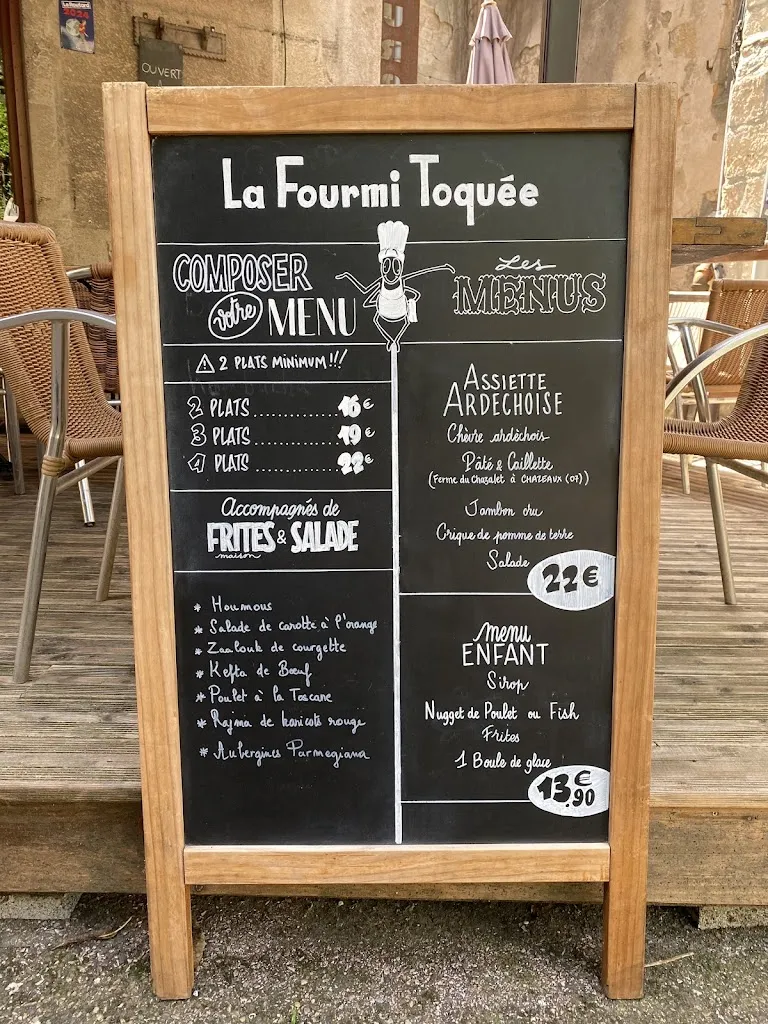 La Routard
2024
OUVERT
À
La Fourmi Toquée
COMPOSER
votre MENU
⚠ 2 PLATS MINIMUM !!!
2 PLATS .............. 16€
3 PLATS .............. 19€
4 PLATS .............. 22€
Accompagnés de
FRITES & SALADE
maison
* Houmous
* Salade de carotte à l'orange
* Zaalouk de courgette
* Kefta de Bœuf
* Poulet à la Toscane
* Rajma de haricots rouge
* Aubergines Parmegiana
Les
MENUS
ASSIETTE
ARDECHOISE
Chèvre ardèchois
Pâté & Caillette
(Ferme du Chazalet à CHAZEAUX (07))
Jambon cru
Crique de pomme de terre
Salade
22€
menu
ENFANT
Sirop
Nugget de Poulet ou Fish
Frites
1 Boule de glace
13€.90